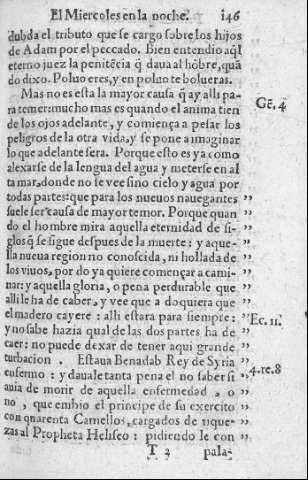 El Miercoles en la noche. 146
dubda el tributo que se cargo sobre los hijos
de Adam por el peccado. Bien entendio aq̃l
eterno juez la penitẽcia q̃ daua al hõbre, quã
do dixo. Poluo eres, y en poluo te bolueras.
Mas no es esta la mayor causa q̃ ay alli pa-
ra temer: mucho mas es quando el anima tien
de los ojos adelante, y comiença a pesar los
peligros de la otra vida, y se pone a imaginar
lo que adelante sera. Porque esto es ya como
alexarse de la lengua del agua y meterse en al
ta mar, donde no se vee sino cielo y agua por
todas partes: que para los nueuos nauegantes ,,
suele ser causa de mayor temor. Porque quan ,,
do el hombre mira aquella eternidad de si- ,,
glos q̃ se sigue despues de la muerte: y aque- ,,
lla nueua region no conoscida, ni hollada de ,,
los viuos, por do ya quiere començar a cami- ,,
nar: y aquella gloria, o pena perdurable que ,,
alli le ha de caber, y vee que a doquiera que ,,
el madero cayere: alli estara para siempre: ,,
y no sabe hazia qual de las dos partes ha de ,,
caer: no puede dexar de tener aqui grande ,,
turbacion. Estaua Benadab Rey de Syria
enfermo: y dauale tanta pena el no saber si
auia de morir de aquella enfermedad, o ,,
no, que embio el principe de su exercito ,,
con quarenta Camellos, cargados de rique- ,,
zas al Propheta Heliseo: pidiendo le con ,,
T 3 pala-
Ge. 4
Ec. 11.
4. re. 8